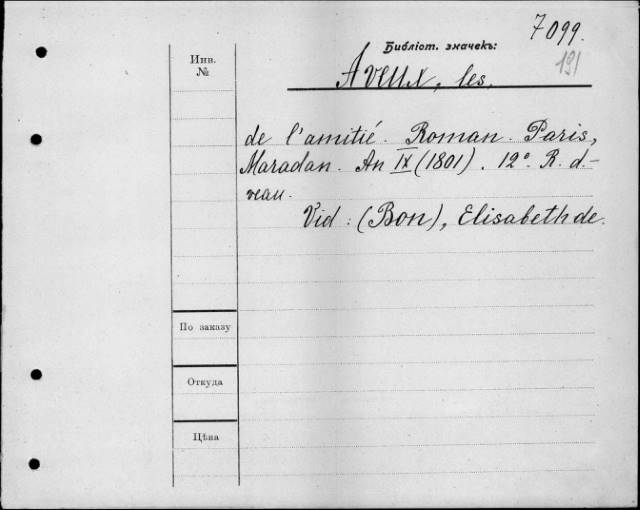 7099.
Библіот. значекъ:
191
Инв.
№
Aveux, les.
de l'amitié. Roman. Paris,
Maradan. An IX (1801). 12°. R. d.-
veau.
Vid: (Bon), Elisabeth de.
По заказу
Откуда
Цѣна